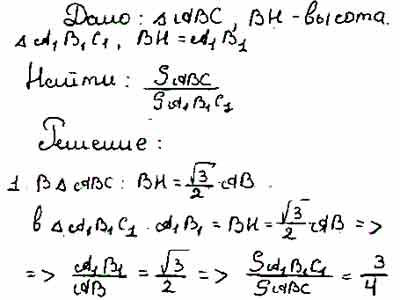 Дано: △ABC, BH - высота.
△A₁B₁C₁, BH = A₁B₁
Найти: S_ABC / S_A₁B₁C₁
Решение:
1. В △ABC: BH = √3/2 · AB.
В △A₁B₁C₁ · A₁B₁ = BH = √3/2 AB =>
=> A₁B₁/AB = √3/2 => S_A₁B₁C₁ / S_ABC = 3/4